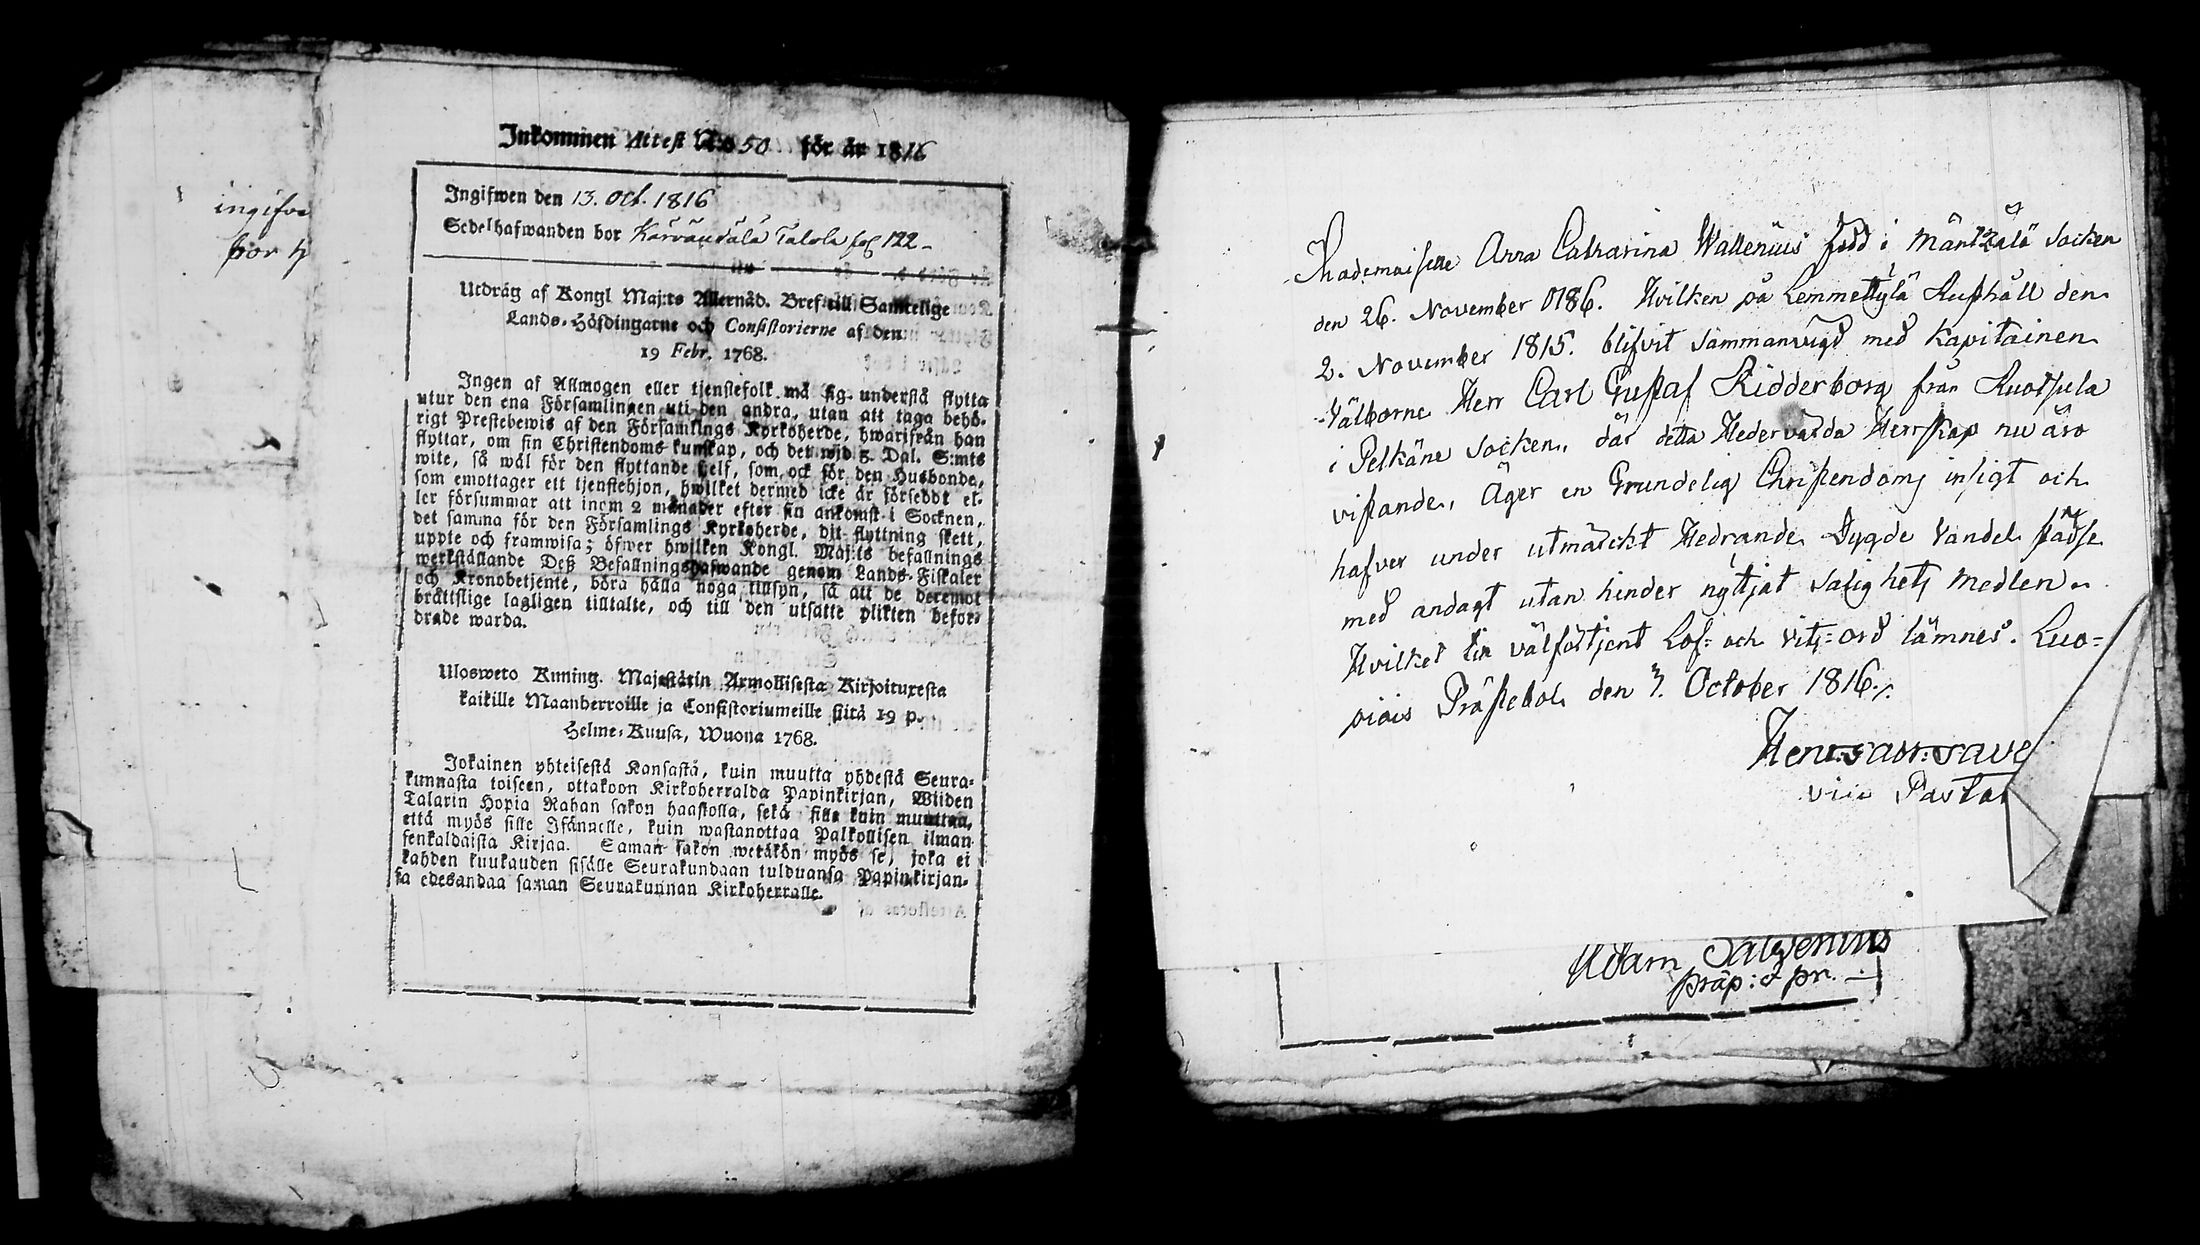 ingifve
bor h
Inkommen Attest N:o 50 för år 1816
Ingifwen den 13. Oct. 1816
Sedelhafwanden bor Talola fol 122
Utdrag af Kongl Maj:ts Allernåd. Bref till Samtelige
Lands-Höfdingarne och Consistorierne af den
19 Febr. 1768.
Ingen af Allmogen eller tjenstefolk må sig understå flytta
utur den ena Församlingen uti den andra, utan att taga behö-
rigt Prestebewis af den Församlings Kyrkoherde, hwarifrån han
flyttar, om sin Christendoms kunskap, och det wid 5. Dal. S:mts
wite, så wäl för den flyttande self, som ock för den Husbonde,
som emottager ett tjenstehjon, hwilket dermed icke är försedt el-
ler försummar att inom 2 månader efter sin ankomst i Socknen,
det samma för den Församlings Kyrkoherde, dit flyttning skett,
uppte och framwisa; öfwer hwilken Kongl. Maj:ts befallnings
werkställande Deß Befallningshafwande genom Lands-Fiskaler
och Kronobetjente, böra hålla noga tillsyn, så att de deremot
bråttslige lagligen tilltalte, och till den utsatte plikten befor-
drade warda.
Ulosweto Kuning. Majestätin Armollisesta Kirjoituxesta
kaikille Maanherroille ja Consistoriumeille siitä 19 p.
Helme-Kuusa, Wuona 1768.
Jokainen yhteisestä Kansasta, kuin muutta yhdestä Seura-
kunnasta toiseen, ottakoon Kirkoherralda Papinkirjan, Wiiden
Talarin Hopia Rahan sakon haastolla, sekä sille kuin muuttaa,
että myös sille Isännelle, kuin wastanottaa Palkollisen ilman
senkaldaista Kirjaa. Saman sakon wetäkön myös se, joka ei
kahden kuukauden sisälle Seurakundaan tulduansa Papinkirjan-
sa edesandaa saman Seurakunnan Kirkoherralle.
Mademoiselle Anna Catharina Wallenius född i Mäntzälä Socken
den 26. November 1786. Hvilken på Lemmettylä Rusthåll den
2. November 1815. blifvit sammanvigd med Kapitainen
Välborne Herr Carl Gustaf Ridderborg från Ruotsula
i Pelkäne Socken, där detta Hedervärda Herrskap nu äro
vistande, Äger en Grundelig Christendoms insigt och
hafver under utmärckt Hedrande Dygde Vandel städse
med andagt utan hinder nyttjat Salighets medlen.
Hvilket til välförtjent Lof- och vits-ord lämnes. Luo-
piois Prästebol den 7. October 1816.
vice Pastor
Adam Salvenius
præp: & pr.